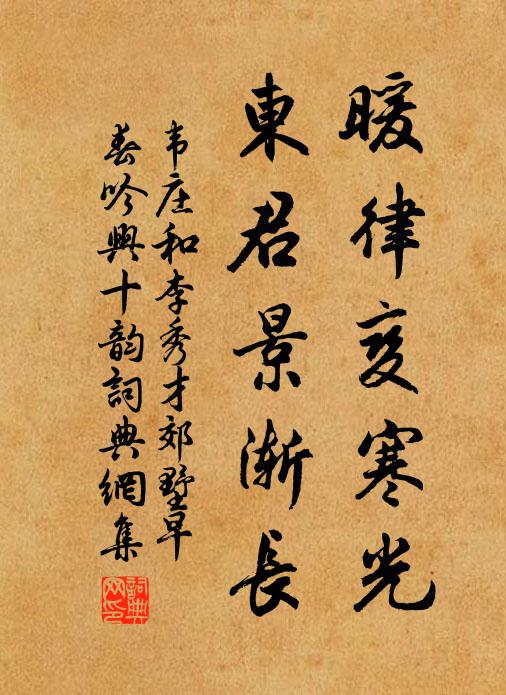 暖律变寒光
東君景漸長
韦庄和李秀才郊墅早
春吟興十韵詞典網集
詞典網印